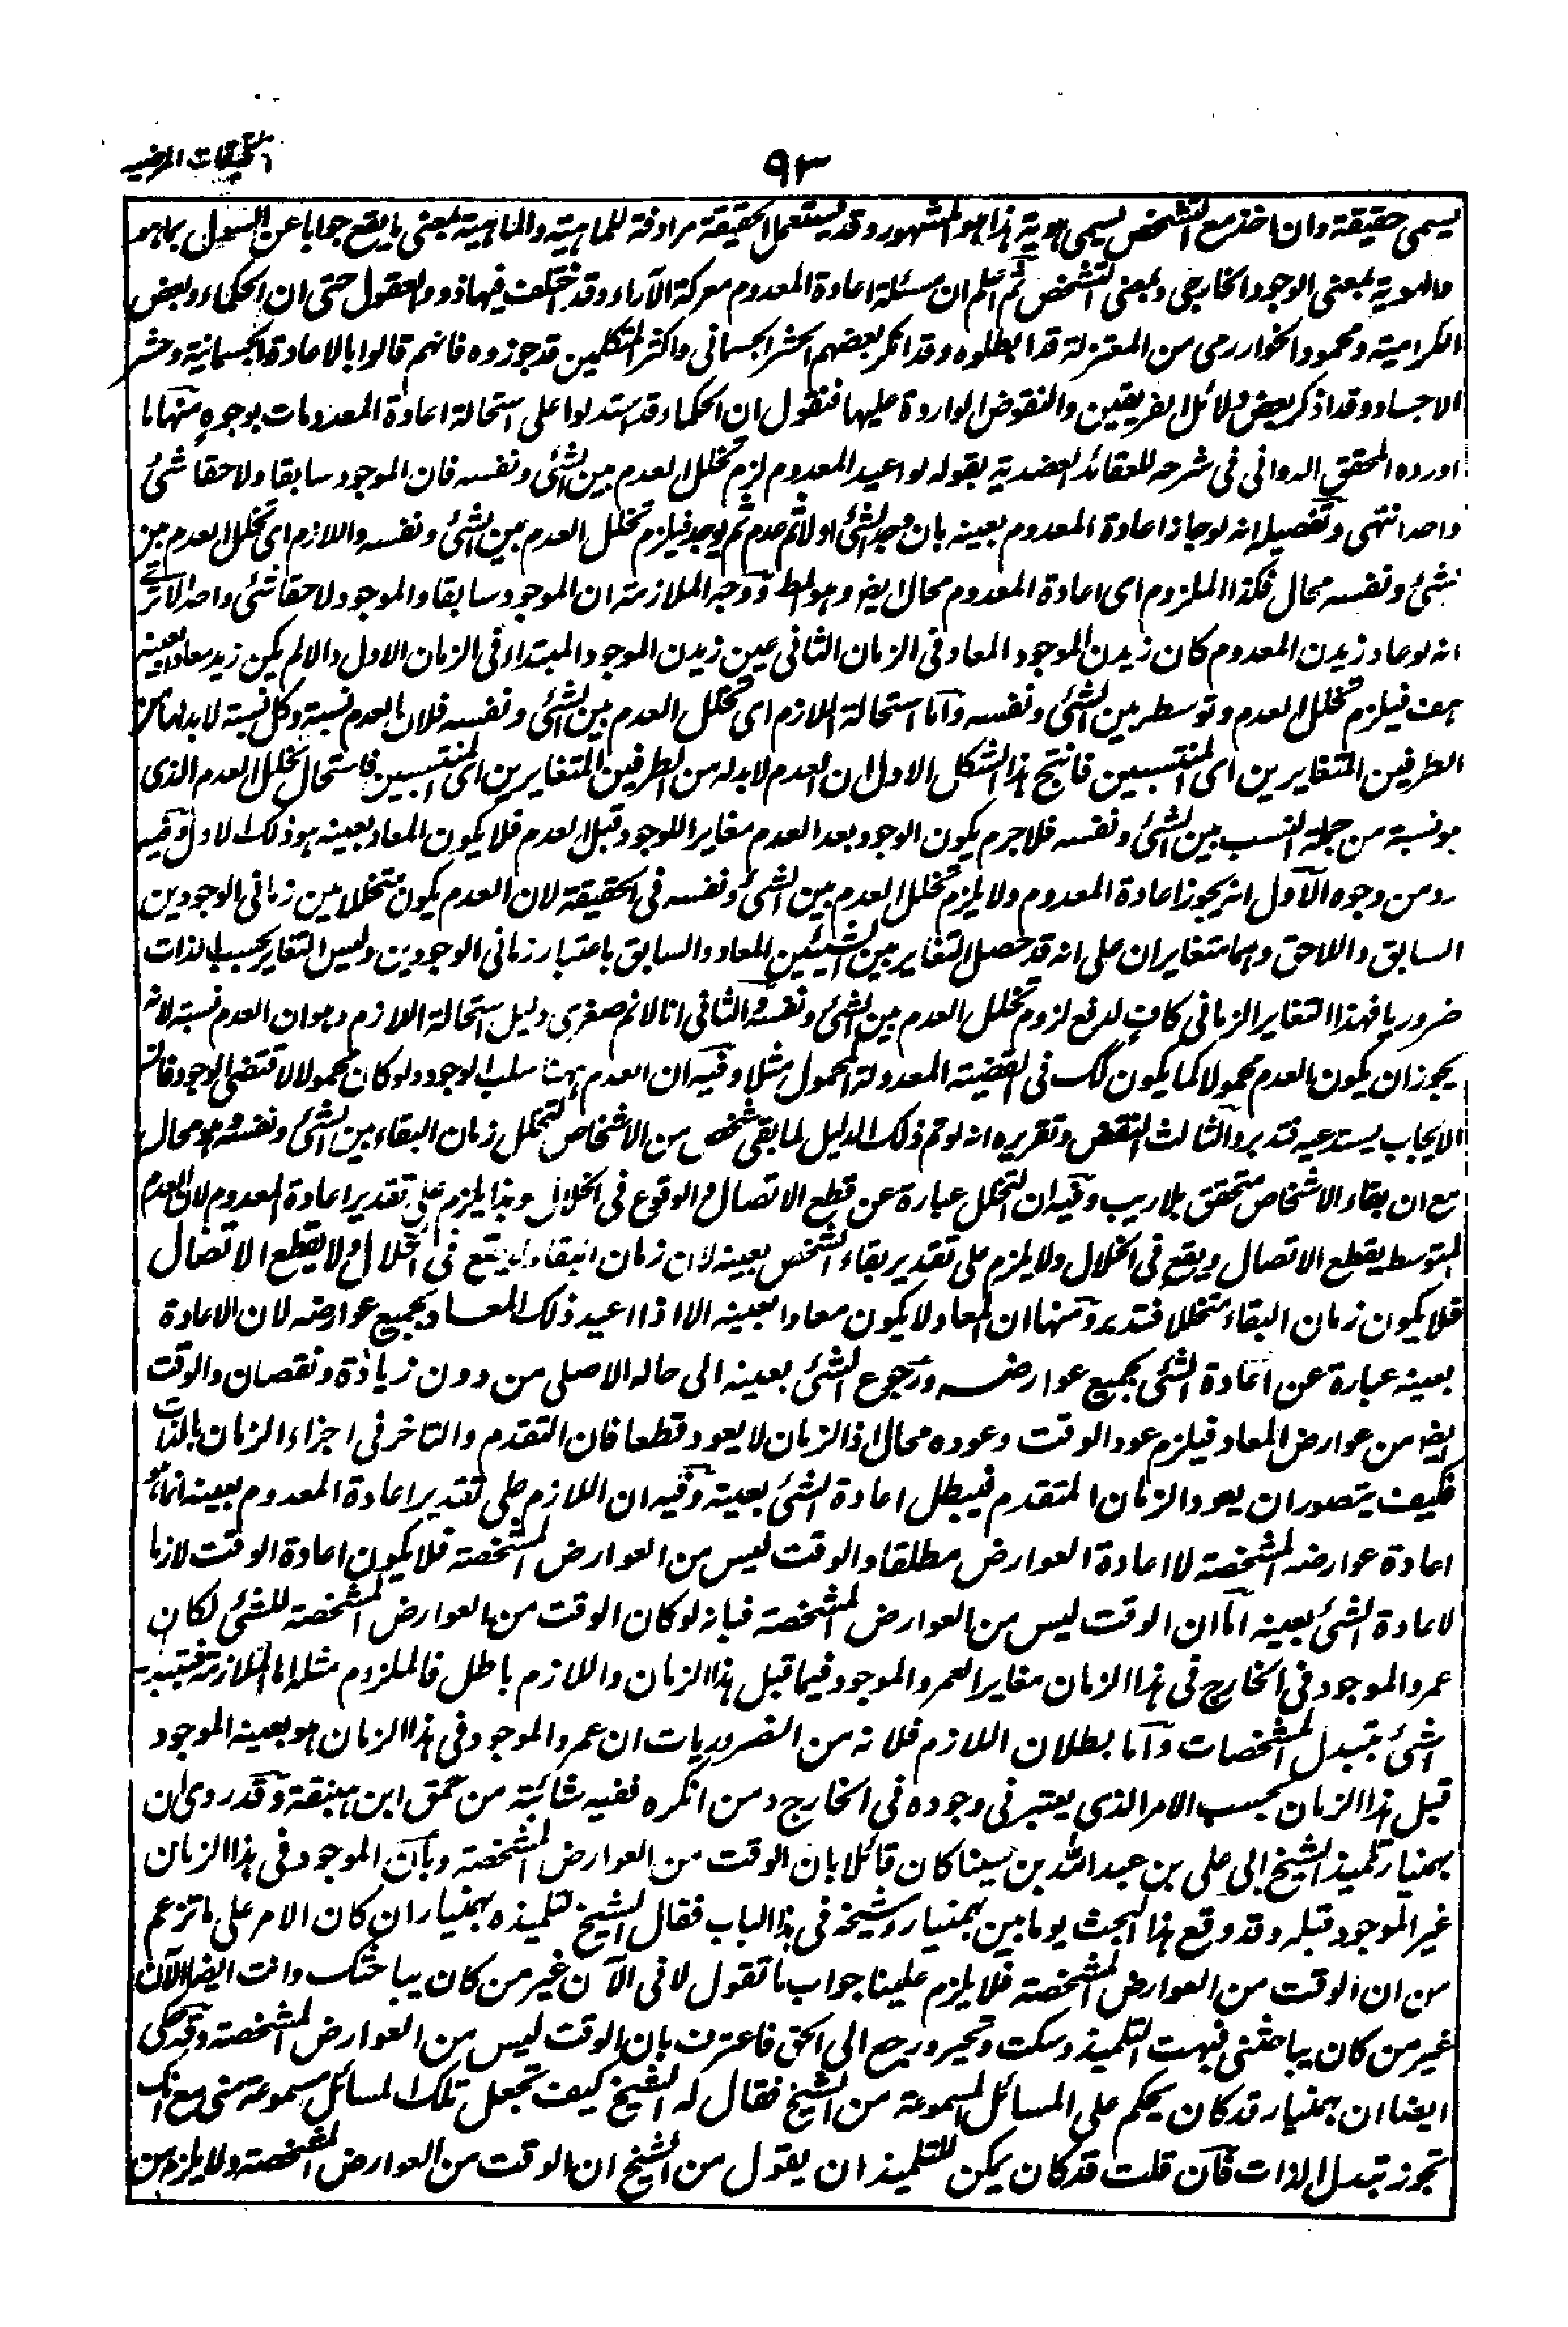 التحقيقات المرضيه
٩٣
يسمى حقيقة وان اخذ مع التشخص يسمى هوية هذا هو المشهور وقد يستعمل الحقيقة مرادفة للماهية والماهية بمعنى ما يقع جوابا عن السول بما هو
والهوية بمعنى الوجود الخارجي وبمعنى التشخص ثم اعلم ان مسئلة اعادة المعدوم معركة الآراء وقد اختلف فيها ذوو العقول حتى ان الحكماء وبعض
الكرامية ومحمود الخوارزمى من المعتزلة قد ابطلوه وقد انكر بعضهم الحشر الجسمانى واكثر المتكلمين قد جوزوه فانهم قالوا بالاعادة الجسمانية وحشر
الاجساد وقد اذكر بعض دلائل الفريقين والنقوض الواردة عليها فنقول ان الحكماء قد استدلوا على استحالة اعادة المعدومات بوجوه منها ما
اورده المحقق الدوانى فى شرحه للعقائد العضدية بقوله لو اعيد المعدوم لزم تخلل العدم بين الشئ ونفسه فان الموجود سابقا ولاحقا شئ
واحد انتهى وتفصيله انه لو جاز اعادة المعدوم بعينه بان وجد الشئ اولا ثم عدم ثم يوجد فيلزم تخلل العدم بين الشئ ونفسه واللازم اى تخلل العدم بين
شئ ونفسه محال فكذا الملزوم اى اعادة المعدوم محال ايضا وهو المط ووجه الملازمة ان الموجود سابقا والموجود لاحقا شئ واحد الا ترى
انه لو عاد زيدن المعدوم كان زيدن الموجود المعاد فى الزمان الثانى عين زيدن الموجود المبتدا فى الزمان الاول والا لم يكن زيد معادا بعينه
هف فيلزم تخلل العدم وتوسطه بين الشئ ونفسه واما استحالة اللازم اى تخلل العدم بين الشئ ونفسه فلان العدم نسبة وكل نسبة لا بد لها من
الطرفين المتغايرين اى المنتسبين فانتج هذا الشكل الاول ان العدم لا بد له من الطرفين المتغايرين اى المنتسبين فاستحال تخلل العدم الذى
هو نسبة من جملة النسب بين الشئ ونفسه فلا جرم يكون الوجود بعد العدم مغايرا للوجود قبل العدم فلا يكون المعاد بعينه هو ذلك الاول وفيه
رد من وجوه الاول انه يجوز اعادة المعدوم ولا يلزم تخلل العدم بين الشئ ونفسه فى الحقيقة لان العدم يكون متخللا بين زمانى الوجودين
السابق واللاحق وهما متغايران على انه قد حصل التغاير بين الشيئين المعاد والسابق باعتبار زمانى الوجودين وليس التغاير بحسب الذات
ضروريا فهذا التغاير الزمانى كاف لدفع لزوم تخلل العدم بين الشئ ونفسه والثانى انا لا نم صغرى دليل استحالة اللازم وهو ان العدم نسبة لانه
يجوز ان يكون العدم محمولا كما يكون كك فى القضية المعدولة المحمول مثلا وفيه ان العدم ههنا سلب الوجود ولو كان محمولا لاقتضى الوجود فان
الايجاب يستدعيه فتدبر والثالث النقض وتقريره انه لو تم ذلك الدليل لما بقى شخص من الاشخاص لتخلل زمان البقاء بين الشئ ونفسه وهو محال
مع ان بقاء الاشخاص متحقق بلا ريب وفيه ان التخلل عبارة عن قطع الاتصال والوقوع فى الخلال وهذا يلزم على تقدير اعادة المعدوم لان العدم
المتوسط يقطع الاتصال ويقع فى الخلال ولا يلزم على تقدير بقاء الشخص بعينه لان زمان البقاء لا يقع فى الخلال ولا يقطع الاتصال
فلا يكون زمان البقاء متخللا فتدبر ومنها ان المعاد لا يكون معادا بعينه الا اذا اعيد ذلك المعاد بجميع عوارضه لان الاعادة
بعينه عبارة عن اعادة الشئ بجميع عوارضه ورجوع الشئ بعينه الى حاله الاصلى من دون زيادة ونقصان والوقت
ايضا من عوارض المعاد فيلزم عود الوقت وعوده محال اذ الزمان لا يعود قطعا فان التقدم والتاخر فى اجزاء الزمان بالذات
فكيف يتصور ان يعود الزمان المتقدم فيبطل اعادة الشئ بعينه وفيه ان اللازم على تقدير اعادة المعدوم بعينه انما هو
اعادة عوارضه المشخصة لا اعادة العوارض مطلقا والوقت ليس من العوارض المشخصة فلا يكون اعادة الوقت لازما
لاعادة الشئ بعينه اما ان الوقت ليس من العوارض المشخصة فبانه لو كان الوقت من العوارض المشخصة للشئ لكان
عمرو الموجود فى الخارج فى هذا الزمان مغايرا لعمرو الموجود فيما قبل هذا الزمان واللازم باطل فالملزوم مثله اما الملازمة فبتبدل
الشئ بتبدل المشخصات واما بطلان اللازم فلانه من الضروريات ان عمرو الموجود فى هذا الزمان هو بعينه الموجود
قبل هذا الزمان بحسب الامر الذى يعتبر فى وجوده فى الخارج ومن انكره ففيه شائبة من حمق ابن هبنقة وقد روى ان
بهمنيار تلميذ الشيخ ابى على بن عبد الله بن سينا كان قائلا بان الوقت من العوارض المشخصة وبان الموجود فى هذا الزمان
غير الموجود قبله وقد وقع هذا البحث يوما بين بهمنيار وشيخه فى هذا الباب فقال الشيخ لتلميذه بهمنيار ان كان الامر على ما تزعم
من ان الوقت من العوارض المشخصة فلا يلزم علينا جواب ما تقول لانى الآن غير من كان يباحثك وانت ايضا الآن
غير من كان يباحثنى فبهت التلميذ وسكت وتحير ورجع الى الحق فاعترف بان الوقت ليس من العوارض المشخصة وقد حكى
ايضا ان بهمنيار قد كان يحكم على المسائل المسموعة من الشيخ فقال له الشيخ كيف تجعل تلك المسائل مسموعة منى مع انك
تجوز تبدل الذات فان قلت قد كان يمكن للتلميذ ان يقول من الشيخ ان الوقت من العوارض المشخصة ولا يلزم من